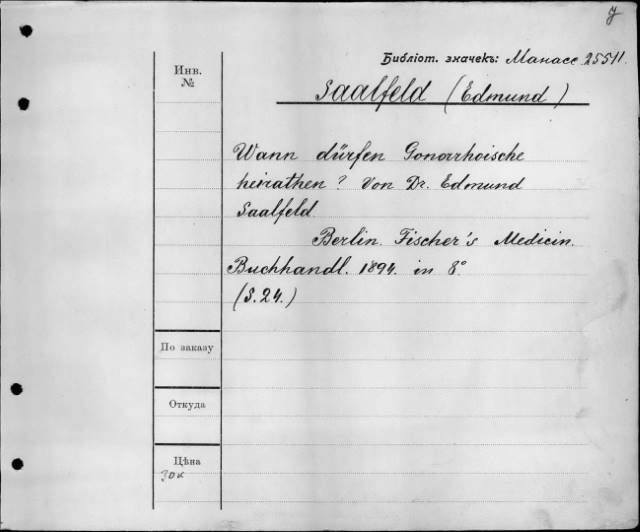 Библіот. значекъ: Манасс 25511.
Инв.
№
Saalfeld (Edmund)
Wann dürfen Gonorrhoische
heirathen? Von Dr. Edmund
Saalfeld
Berlin. Fischer's Medicin.
Buchhandl. 1894. in 8°
(S. 24.)
По заказу
Откуда
Цѣна
30к